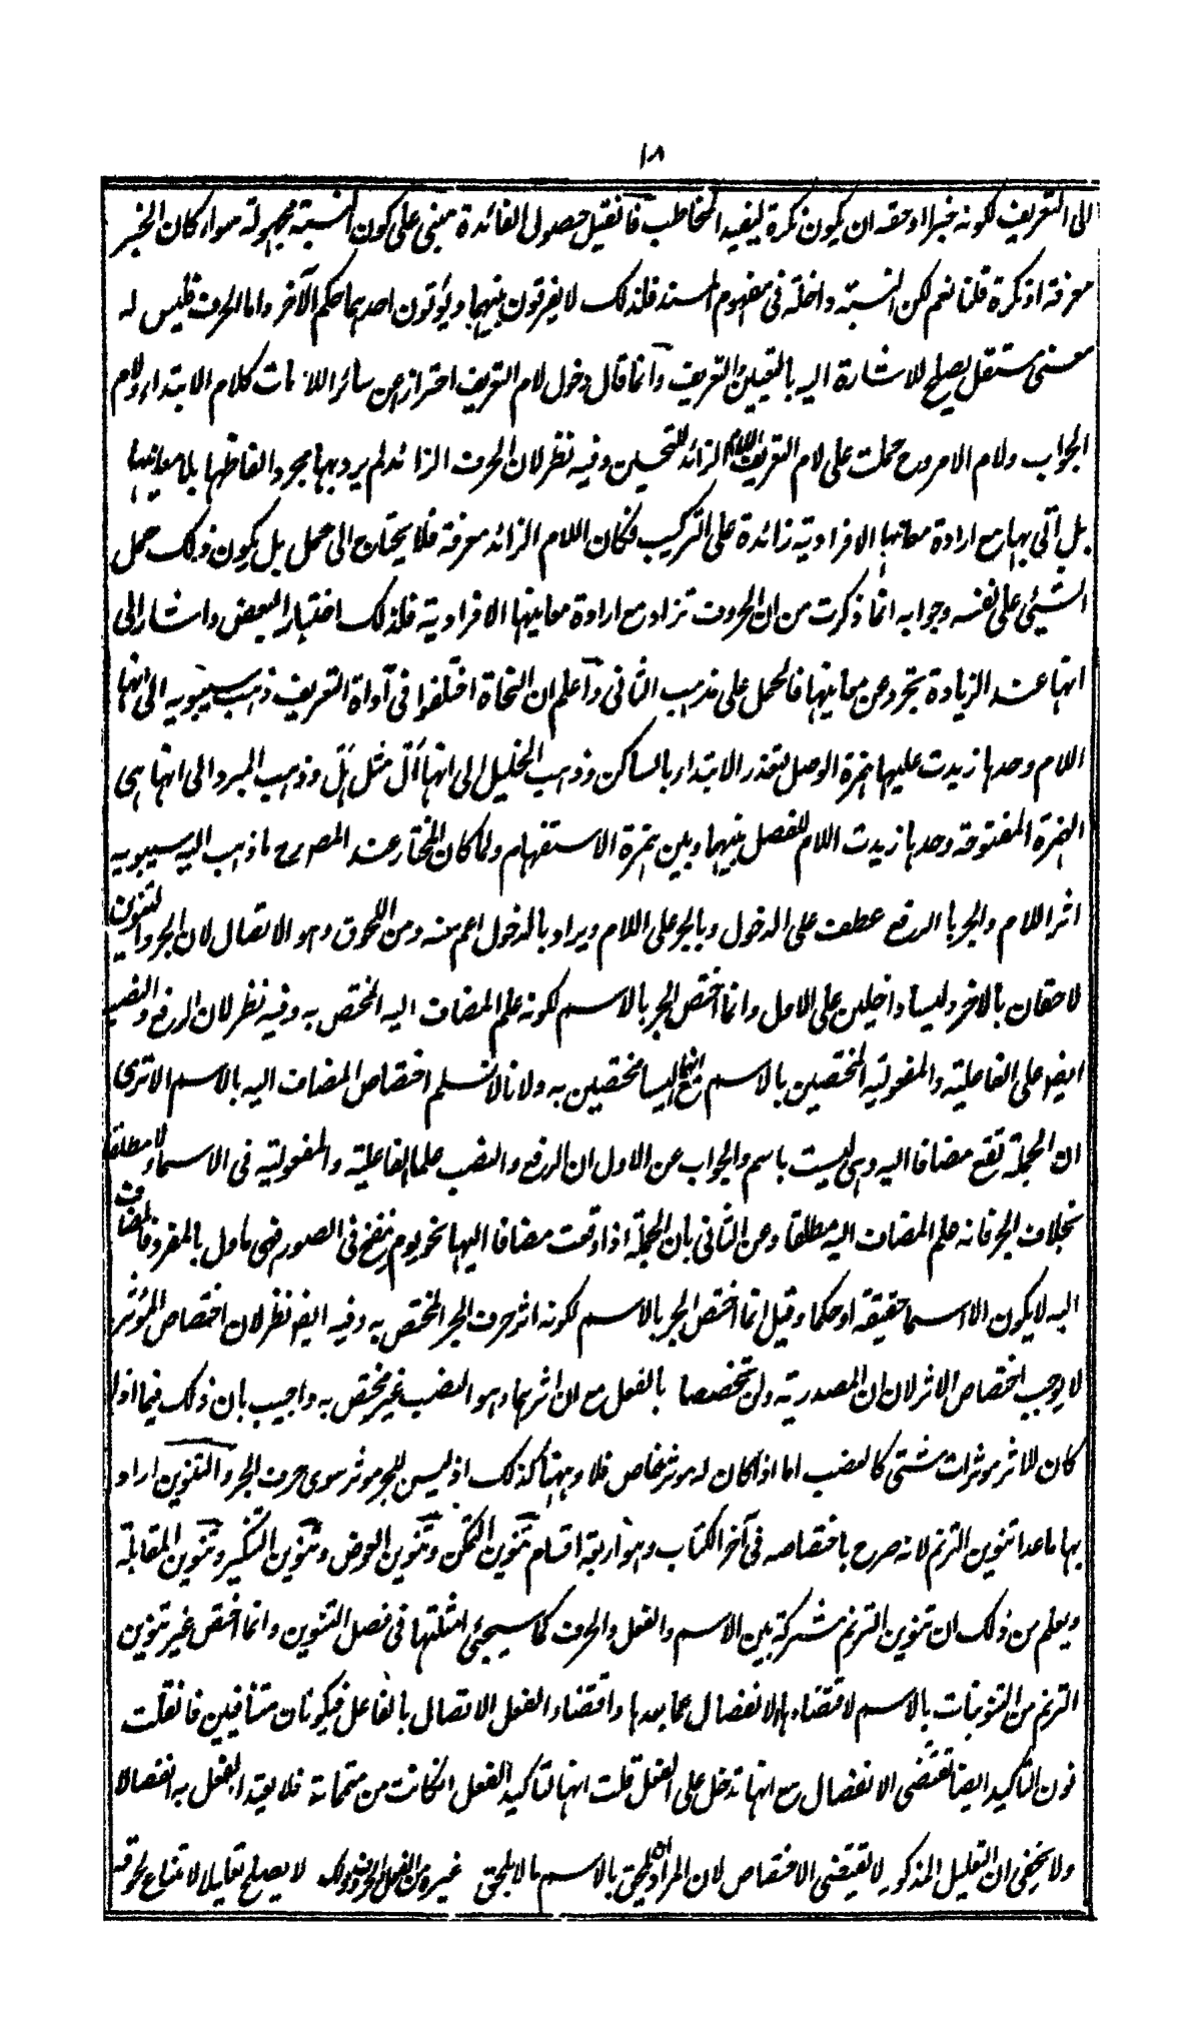 ١٨
الى التعريف لكونه خبرا وحقه ان يكون نكرة ليفيد المخاطب فانقيل حصول الفائدة مبنى على كون النسبة مجهولة سواء كان الخبر
معرفة او نكرة قلنا نعم لكن النسبة داخلة فى مفهوم المسند فلذلك لا يفرقون بينهما ويؤتون احدهما حكم الآخر واما الحرف فليس له
معنى مستقل يصلح للاشارة اليه بالتعيين والتعريف وانما قال دخول لام التعريف احترازا عن سائر اللامات كلام الابتداء ولام
الجواب ولام الامر وح حملت على لام التعريف اللام الزائد للتحسين وفيه نظر لان الحرف الزائد لم يرد بها مجرد الفاظها بلا معانيها
بل اتى بها مع ارادة معانيها الافرادية زائدة على التركيب فكان اللام الزائد معرفة فلا يحتاج الى حمل بل يكون ذلك حمل
الشيئ على نفسه وجوابه انما ذكرت من ان الحروف تزاد مع ارادة معانيها الافرادية فلذلك اختبار البعض واشار الى
انها عند الزيادة تجرد عن معانيها فالحمل على مذهب الثانى واعلم ان النحاة اختلفوا فى آداة التعريف ذهب سيبويه الى انها
اللام وحدها زيدت عليها همزة الوصل لتعذر الابتداء بالساكن وذهب الخليل الى انها أل مثل هل وذهب المبرد الى انها هى
الهمزة المفتوحة وحدها زيدت اللام للفصل بينها وبين همزة الاستفهام ولما كان المختار عند المصرح ما ذهب اليه سيبويه
اثر اللام والجر بالرفع عطف على الدخول وبالجر على اللام ويراد بالدخول اعم منه ومن اللحوق وهو الاتصال لان الجر والتنوين
لاحقان بالآخر وليسا داخلين على الاول وانما اختص الجر بالاسم لكونه علم المضاف اليه المختص به وفيه نظر لان الرفع والنصب
ايضا علما الفاعلية والمفعولية المختصين بالاسم مع انهما ليسا مختصين به ولانا لا نسلم اختصاص المضاف اليه بالاسم الا ترى
ان الجملة تقع مضافا اليه وهى ليست باسم والجواب عن الاول ان الرفع والنصب علما الفاعلية والمفعولية فى الاسماء لا مطلقا
بخلاف الجر فانه علم المضاف اليه مطلقا وعن الثانى بان الجملة اذا وقعت مضافا اليها نحو يوم ينفخ فى الصور فهى ماول بالمفرد فالمضاف
اليه لا يكون الا اسما حقيقة او حكما وقيل انما اختص الجر بالاسم لكونه اثر حرف الجر المختص به وفيه ايضا نظر لان اختصاص المؤثر
لا يوجب اختصاص الاثر لان ان المصدرية ولن تختصا بالفعل مع ان اثرهما وهو النصب غير مختص به واجيب بان ذلك فيما اذا
كان للاثر موثرات شتى كالنصب اما اذا كان له موثر خاص فلا وههنا كذلك اذ ليس للجر موثر سوى حرف الجر والتنوين اراد
بها ما عدا تنوين الترنم لانه صرح باختصاصه فى آخر الكتاب وهو اربعة اقسام تنوين التمكن وتنوين العوض وتنوين التنكير وتنوين المقابلة
ويعلم من ذلك ان تنوين الترنم مشتركة بين الاسم والفعل والحرف كما سيجئ امثلتها فى فصل التنوين وانما اختص غير تنوين
الترنم من التنوينات بالاسم لاقتضاءها الانفصال عما بعدها واقتضاء الفعل الاتصال بالفاعل فيكونان متنافيين فانقلت
نون التاكيد ايضا تقتضى الانفصال مع انها تدخل على الفعل قلت انها لتاكيد الفعل انكانت من متمماته فلا يعتد الفعل به انفصالا
ولا يخفى ان التعليل المذكور لا يقتضى الاختصاص لان المراد ان يلحق بالاسم ما لا يلحق غيره من الفعل والحرف وذلك لا يصلح تعليلا لامتناع لحوقه